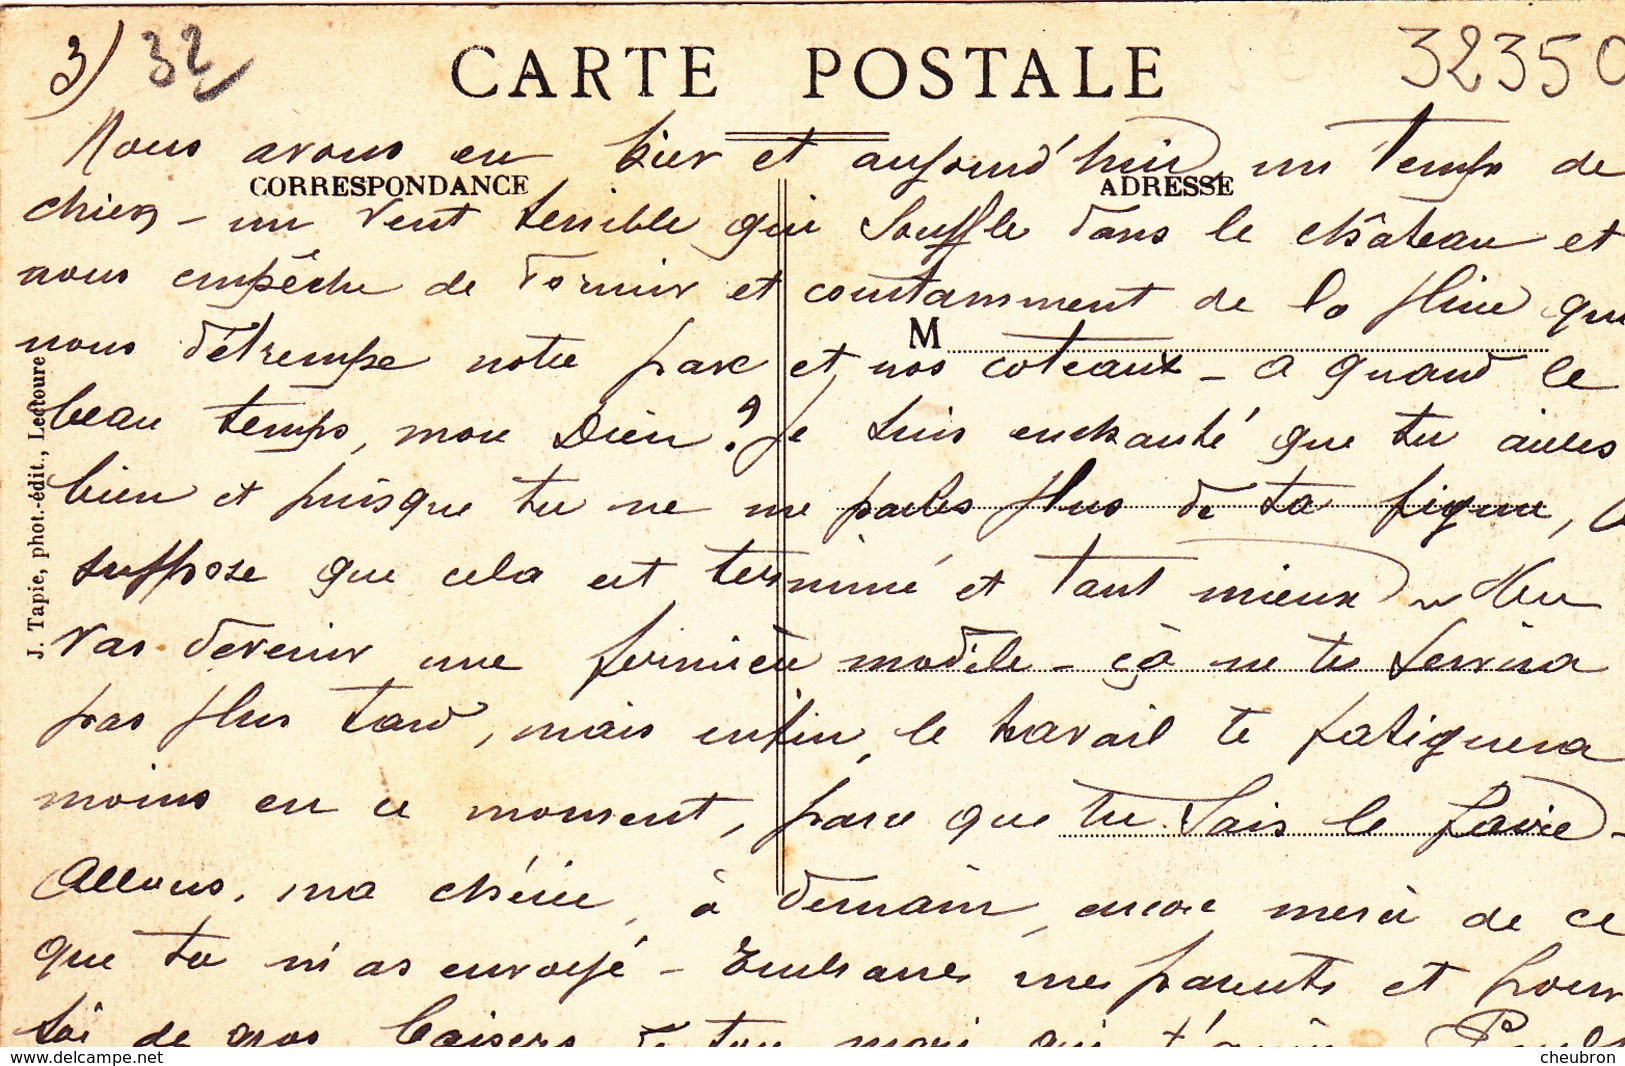 3) 32 CARTE POSTALE 32350
Nous avons eu hier et aujourd'hui un temps de
CORRESPONDANCE ADRESSE
chien - un vent terrible qui souffle dans le château et
nous empêche de dormir et constamment de la pluie qui
M
nous détrempe notre parc et nos coteaux - a quand le
beau temps, mon Dieu ? Je suis enchanté que tu ailles
bien et puisque tu ne me parles plus de ta figure, je
suppose que cela est terminé et tant mieux - Tu
vas devenir une fermière modèle - çà ne te servira
pas plus tard, mais enfin, le travail te fatiguera
moins en ce moment, parce que tu sais le faire -
Allons, ma chérie, à demain, encore merci de ce
que tu m'as envoyé - Embrasse mes parents et pour
toi de gros baisers de ton mari qui t'aime Paul
J. Tapie, phot.-édit., Lectoure
cheubron